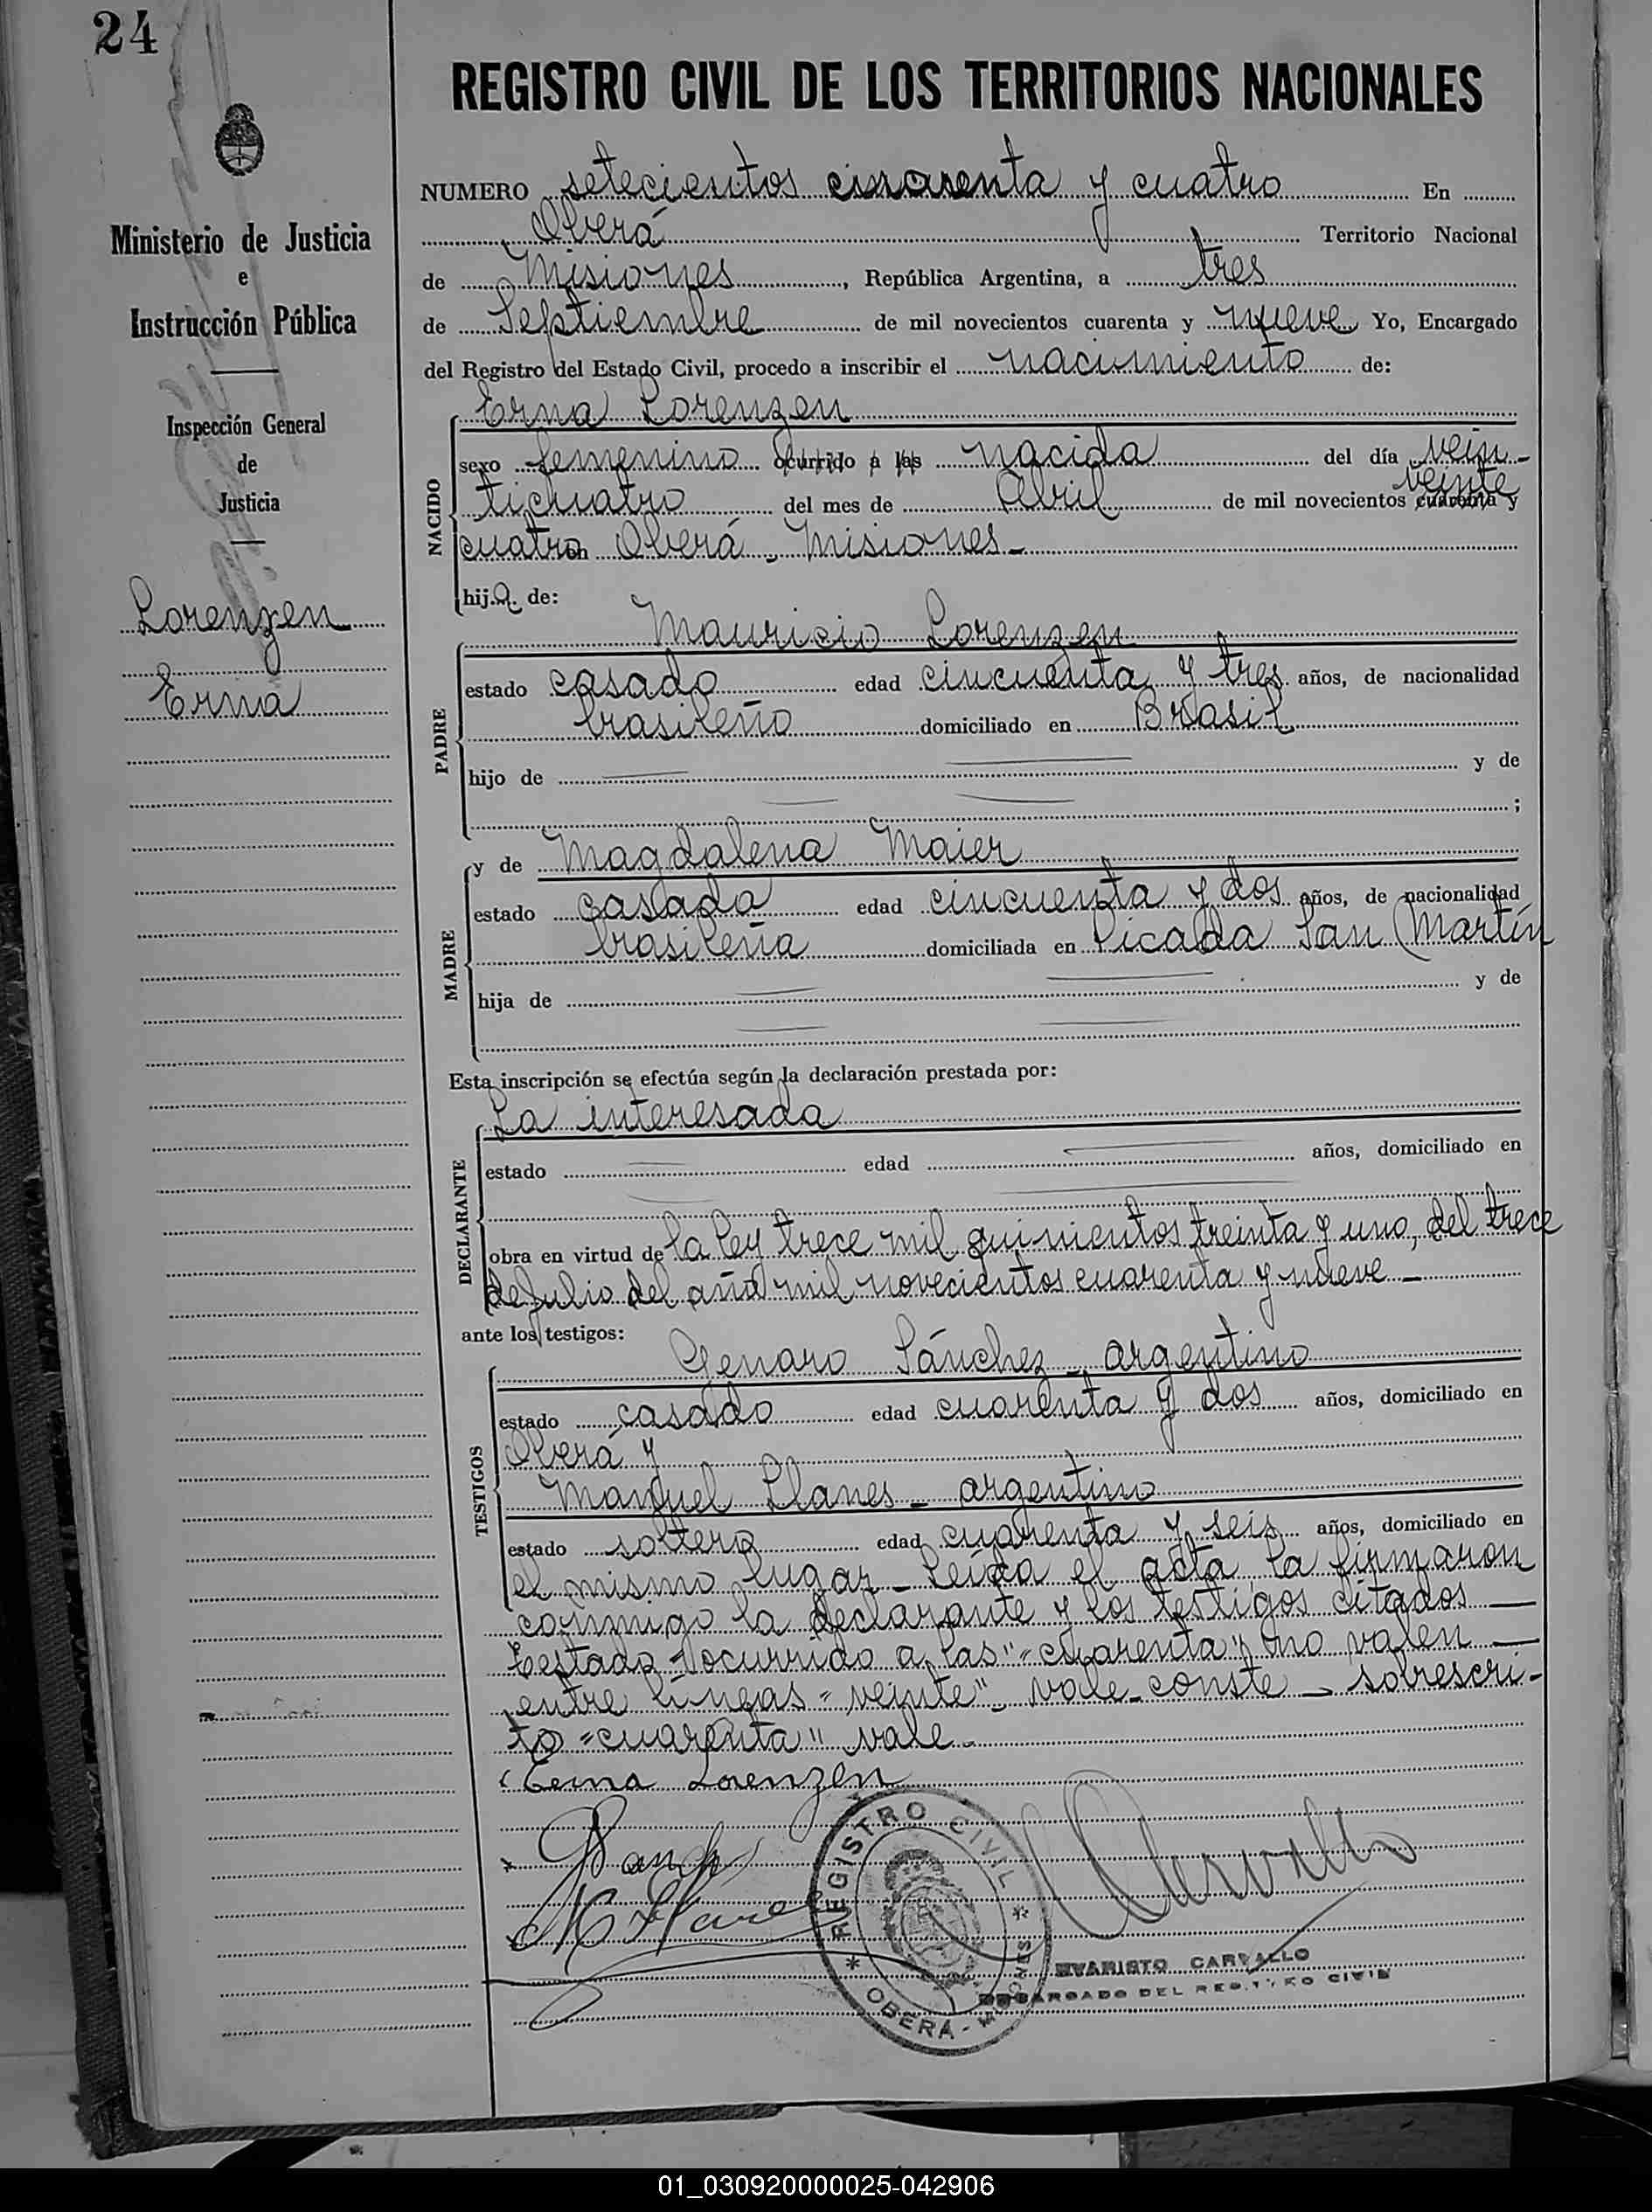 24
REGISTRO CIVIL DE LOS TERRITORIOS NACIONALES
Ministerio de Justicia
e
Instrucción Pública
Inspección General
de
Justicia
Lorenzen
Erna
NUMERO setecientos cuarenta y cuatro En
Oberá Territorio Nacional
de Misiones, República Argentina, a tres
de Septiembre de mil novecientos cuarenta y nueve Yo, Encargado
del Registro del Estado Civil, procedo a inscribir el nacimiento de:
NACIDO
Erna Lorenzen
sexo femenino ocurrido a las nacida del día vein-
veinte
ticuatro del mes de Abril de mil novecientos cuarenta y
cuatro en Oberá - Misiones -
hija de:
PADRE
Mauricio Lorenzen
estado casado edad cincuenta y tres años, de nacionalidad
brasileño domiciliado en Brasil
hijo de y de
;
MADRE
y de Magdalena Maier
estado casada edad cincuenta y dos años, de nacionalidad
brasileña domiciliada en Picada San Martín
hija de y de
Esta inscripción se efectúa según la declaración prestada por:
DECLARANTE
La interesada
estado edad años, domiciliado en
obra en virtud de la ley trece mil quinientos treinta y uno, del trece
de julio del año mil novecientos cuarenta y nueve -
ante los testigos:
TESTIGOS
Genaro Sánchez - argentino
estado casado edad cuarenta y dos años, domiciliado en
Oberá y
Manuel Llanes - argentino
estado soltero edad cuarenta y seis años, domiciliado en
el mismo lugar - Leída el acta, la firmaron
conmigo la declarante y los testigos citados -
Testado "ocurrido a las" "cuarenta" no valen -
entre líneas "veinte" - vale - conste - sobrescri-
to "cuarenta" vale -
Erna Lorenzen
REGISTRO CIVIL
OBERÁ - MISIONES
EVARISTO CARVALLO
ENCARGADO DEL REGISTRO CIVIL
01_030920000025-042906